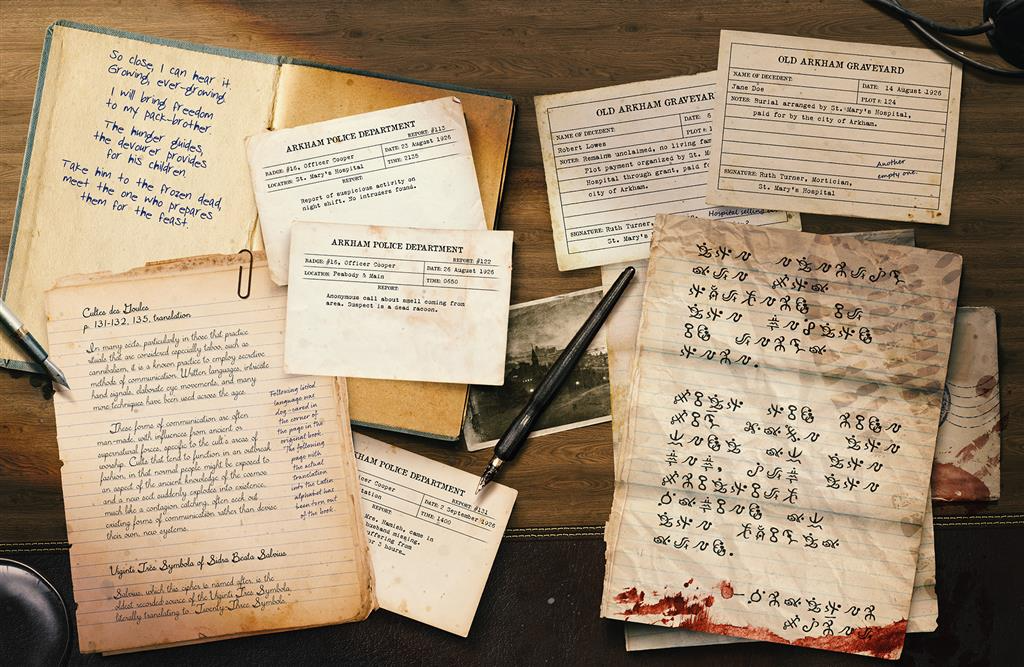 So close, I can hear it.
Growing, ever-growing.
I will bring freedom
to my pack-brother.
The hunger guides,
the devourer provides
for his children.
Take him to the frozen dead,
meet the one who prepares
them for the feast.
ARKHAM POLICE DEPARTMENT
REPORT: #113
BADGE: #16, Officer Cooper
DATE: 23 August 1926
LOCATION: St. Mary's Hospital
TIME: 2135
REPORT:
Report of suspicious activity on
night shift. No intruders found.
ARKHAM POLICE DEPARTMENT
REPORT: #122
BADGE: #16, Officer Cooper
DATE: 26 August 1926
LOCATION: Peabody & Main
TIME: 0650
REPORT:
Anonymous call about smell coming from
area. Suspect is a dead racoon.
KHAM POLICE DEPARTMENT
REPORT: #131
cer Cooper
DATE: 2 September 1926
tation
TIME: 1400
rs. Hamish, came in
husband missing.
uffering from
r 3 hours.
Cultes des Goules
p. 131-132, 135, translation
In many sects, particularly in those that practice
rituals that are considered especially taboo, such as
cannibalism, it is a known practice to employ secretive
methods of communication. Written languages, intricate
hand signals, elaborate eye movements, and many
more techniques have been used across the ages.
These forms of communication are often
man-made, with influences from ancient or
supernatural forces, specific to the cult's areas of
worship. Cults that tend to function in an outbreak
fashion, in that normal people might be exposed to
an aspect of the ancient knowledge of the cosmos
and a new sect suddenly explodes into existence,
much like a contagion catching, often seek out
existing forms of communication rather than devise
their own new systems.
Following listed
language was
dog-eared in
the corner of
the page in the
original book.
The following
page with
the actual
translation
into the Latin
alphabet has
been torn out
of the book.
Viginti Tres Symbola of Sidra Beata Salvius
Salvius, which this cipher is named after, is the
oldest recorded source of the Viginti Tres Symbola,
literally translating to Twenty-Three Symbols.
OLD ARKHAM GRAVEYAR
NAME OF DECEDENT:
DATE: 6
Robert Lowes
PLOT #: 1
NOTES: Remains unclaimed, no living fam
Plot payment organized by St. M
Hospital through grant, paid f
city of Arkham.
Hospital selling
SIGNATURE: Ruth Turner,
St. Mary's
OLD ARKHAM GRAVEYARD
NAME OF DECEDENT:
DATE: 14 August 1926
Jane Doe
PLOT #: 124
NOTES: Burial arranged by St. Mary's Hospital,
paid for by the city of Arkham.
Another
empty one.
SIGNATURE: Ruth Turner, Mortician,
St. Mary's Hospital